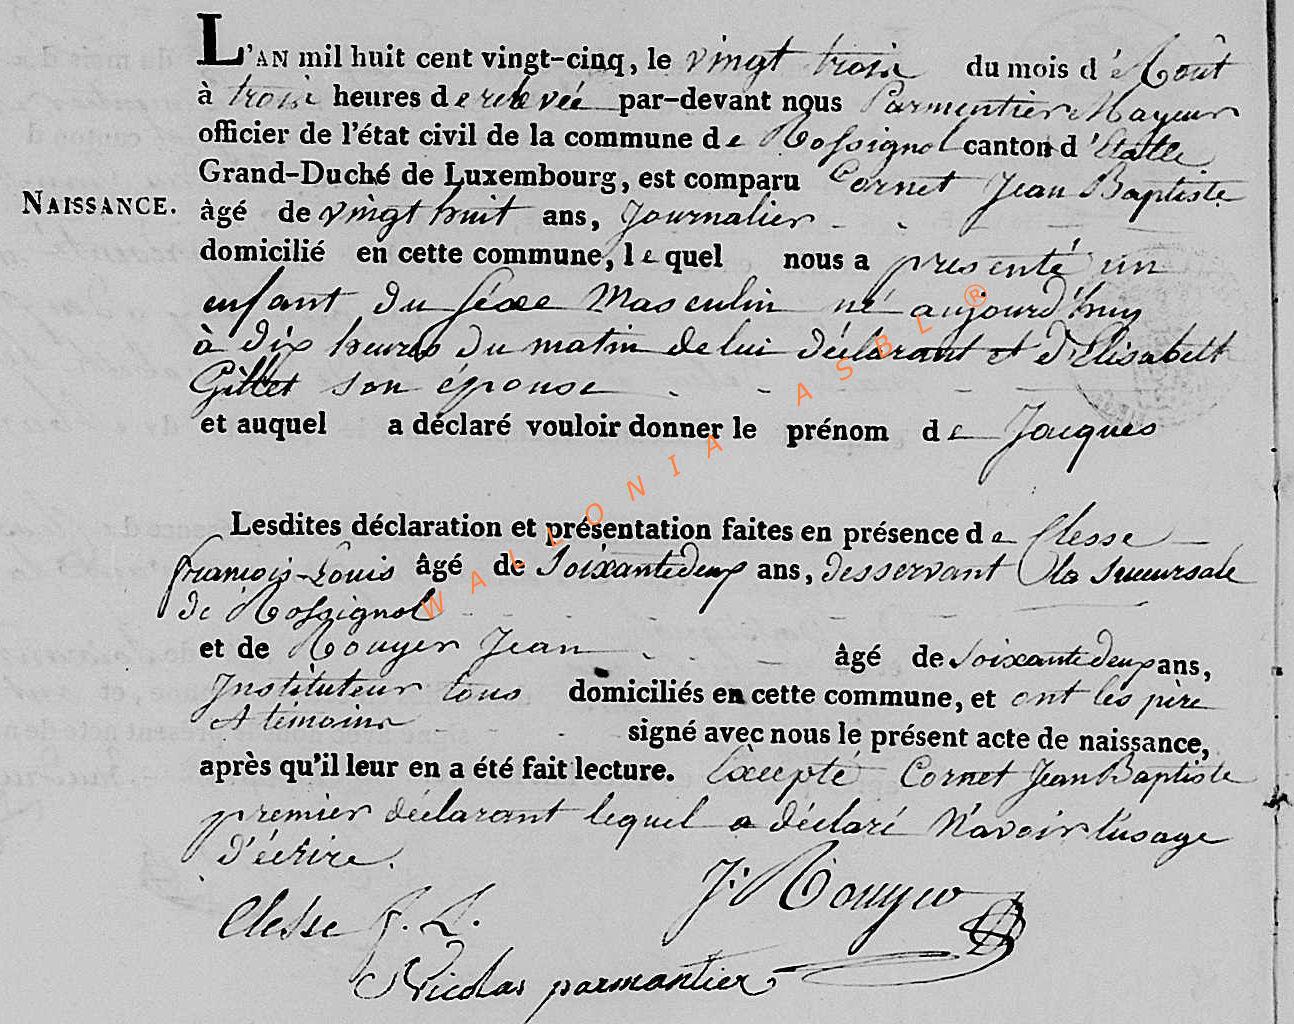 L'AN mil huit cent vingt-cinq, le vingt trois du mois d'Aoùt
à trois heures de relevée par-devant nous Parmentier Mayeur
officier de l'état civil de la commune de Rossignol canton d'Etalle
Grand-Duché de Luxembourg, est comparu Cornet Jean Baptiste
NAISSANCE. âgé de vingt huit ans, Journalier
domicilié en cette commune, lequel nous a présenté un
enfant du séxe Masculin né aujourd'huy
à dix heures du matin de lui déclarant et d'Elisabett
Gillet son épouse
et auquel a déclaré vouloir donner le prénom de Jacques
Lesdites déclaration et présentation faites en présence de Clesse
françois-Louis âgé de Soixante deux ans, desservant la Succursale
de Rossignol
et de Rouyer Jean âgé de Soixante deux ans,
Instituteur tous domiciliés en cette commune, et ont les père
et témoins signé avec nous le présent acte de naissance,
après qu'il leur en a été fait lecture. Excepté Cornet Jean Baptiste
premier déclarant lequel a déclaré N'avoir l'usage
d'écrire.
J: Rouyer
Clesse f. L.
Nicolas parmantier
WALLONIA ASBL®